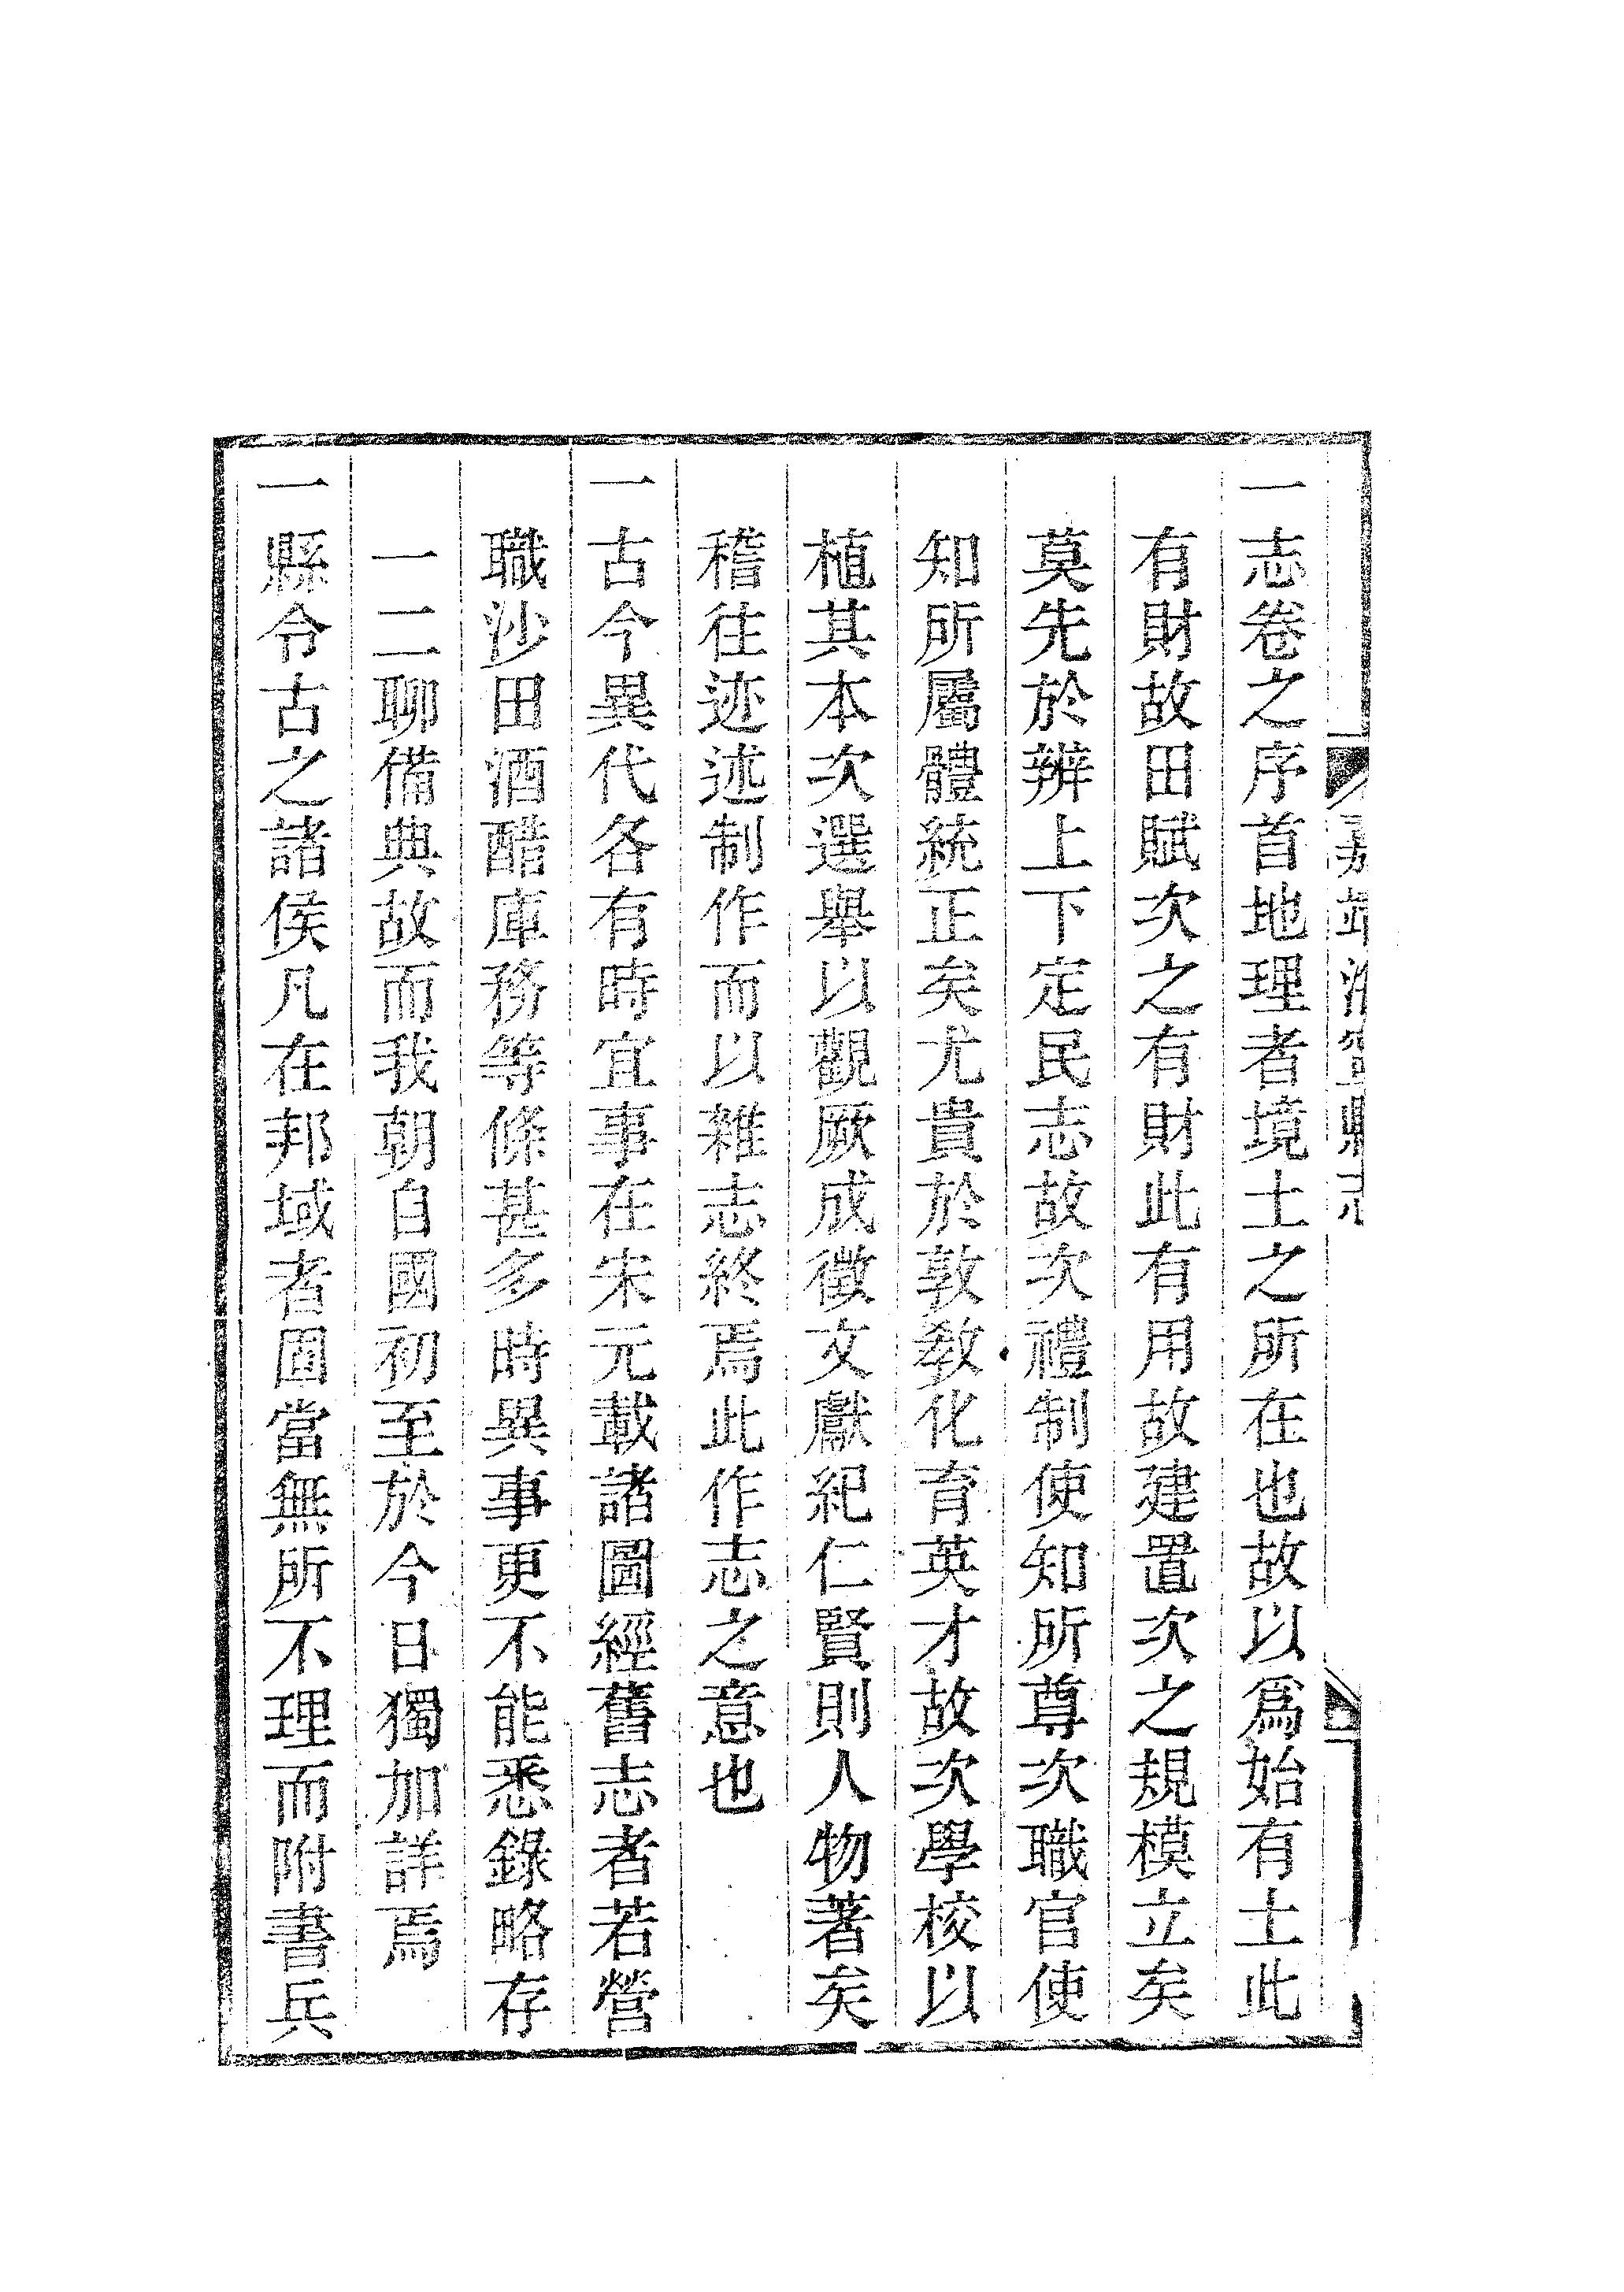 一志卷之序首地理者境土之所在也故以爲始有土此
有財故田賦次之有財此有用故建置次之規模立矣
莫先於辨上下定民志故次禮制使知所尊次職官使
知所屬體統正矣尤貴於敦教化育英才故次學校以
植其本次選舉以觀厥成徵文獻紀仁賢則人物著矣
稽往迹述制作而以雜志終焉此作志之意也
一古今異代各有時宜事在宋元載諸圖經舊志者若營
職沙田酒醋庫務等條甚多時異事更不能悉錄略存
一二聊備典故而我朝自國初至於今日獨加詳焉
一縣令古之諸侯凡在邦域者固當無所不理而附書兵